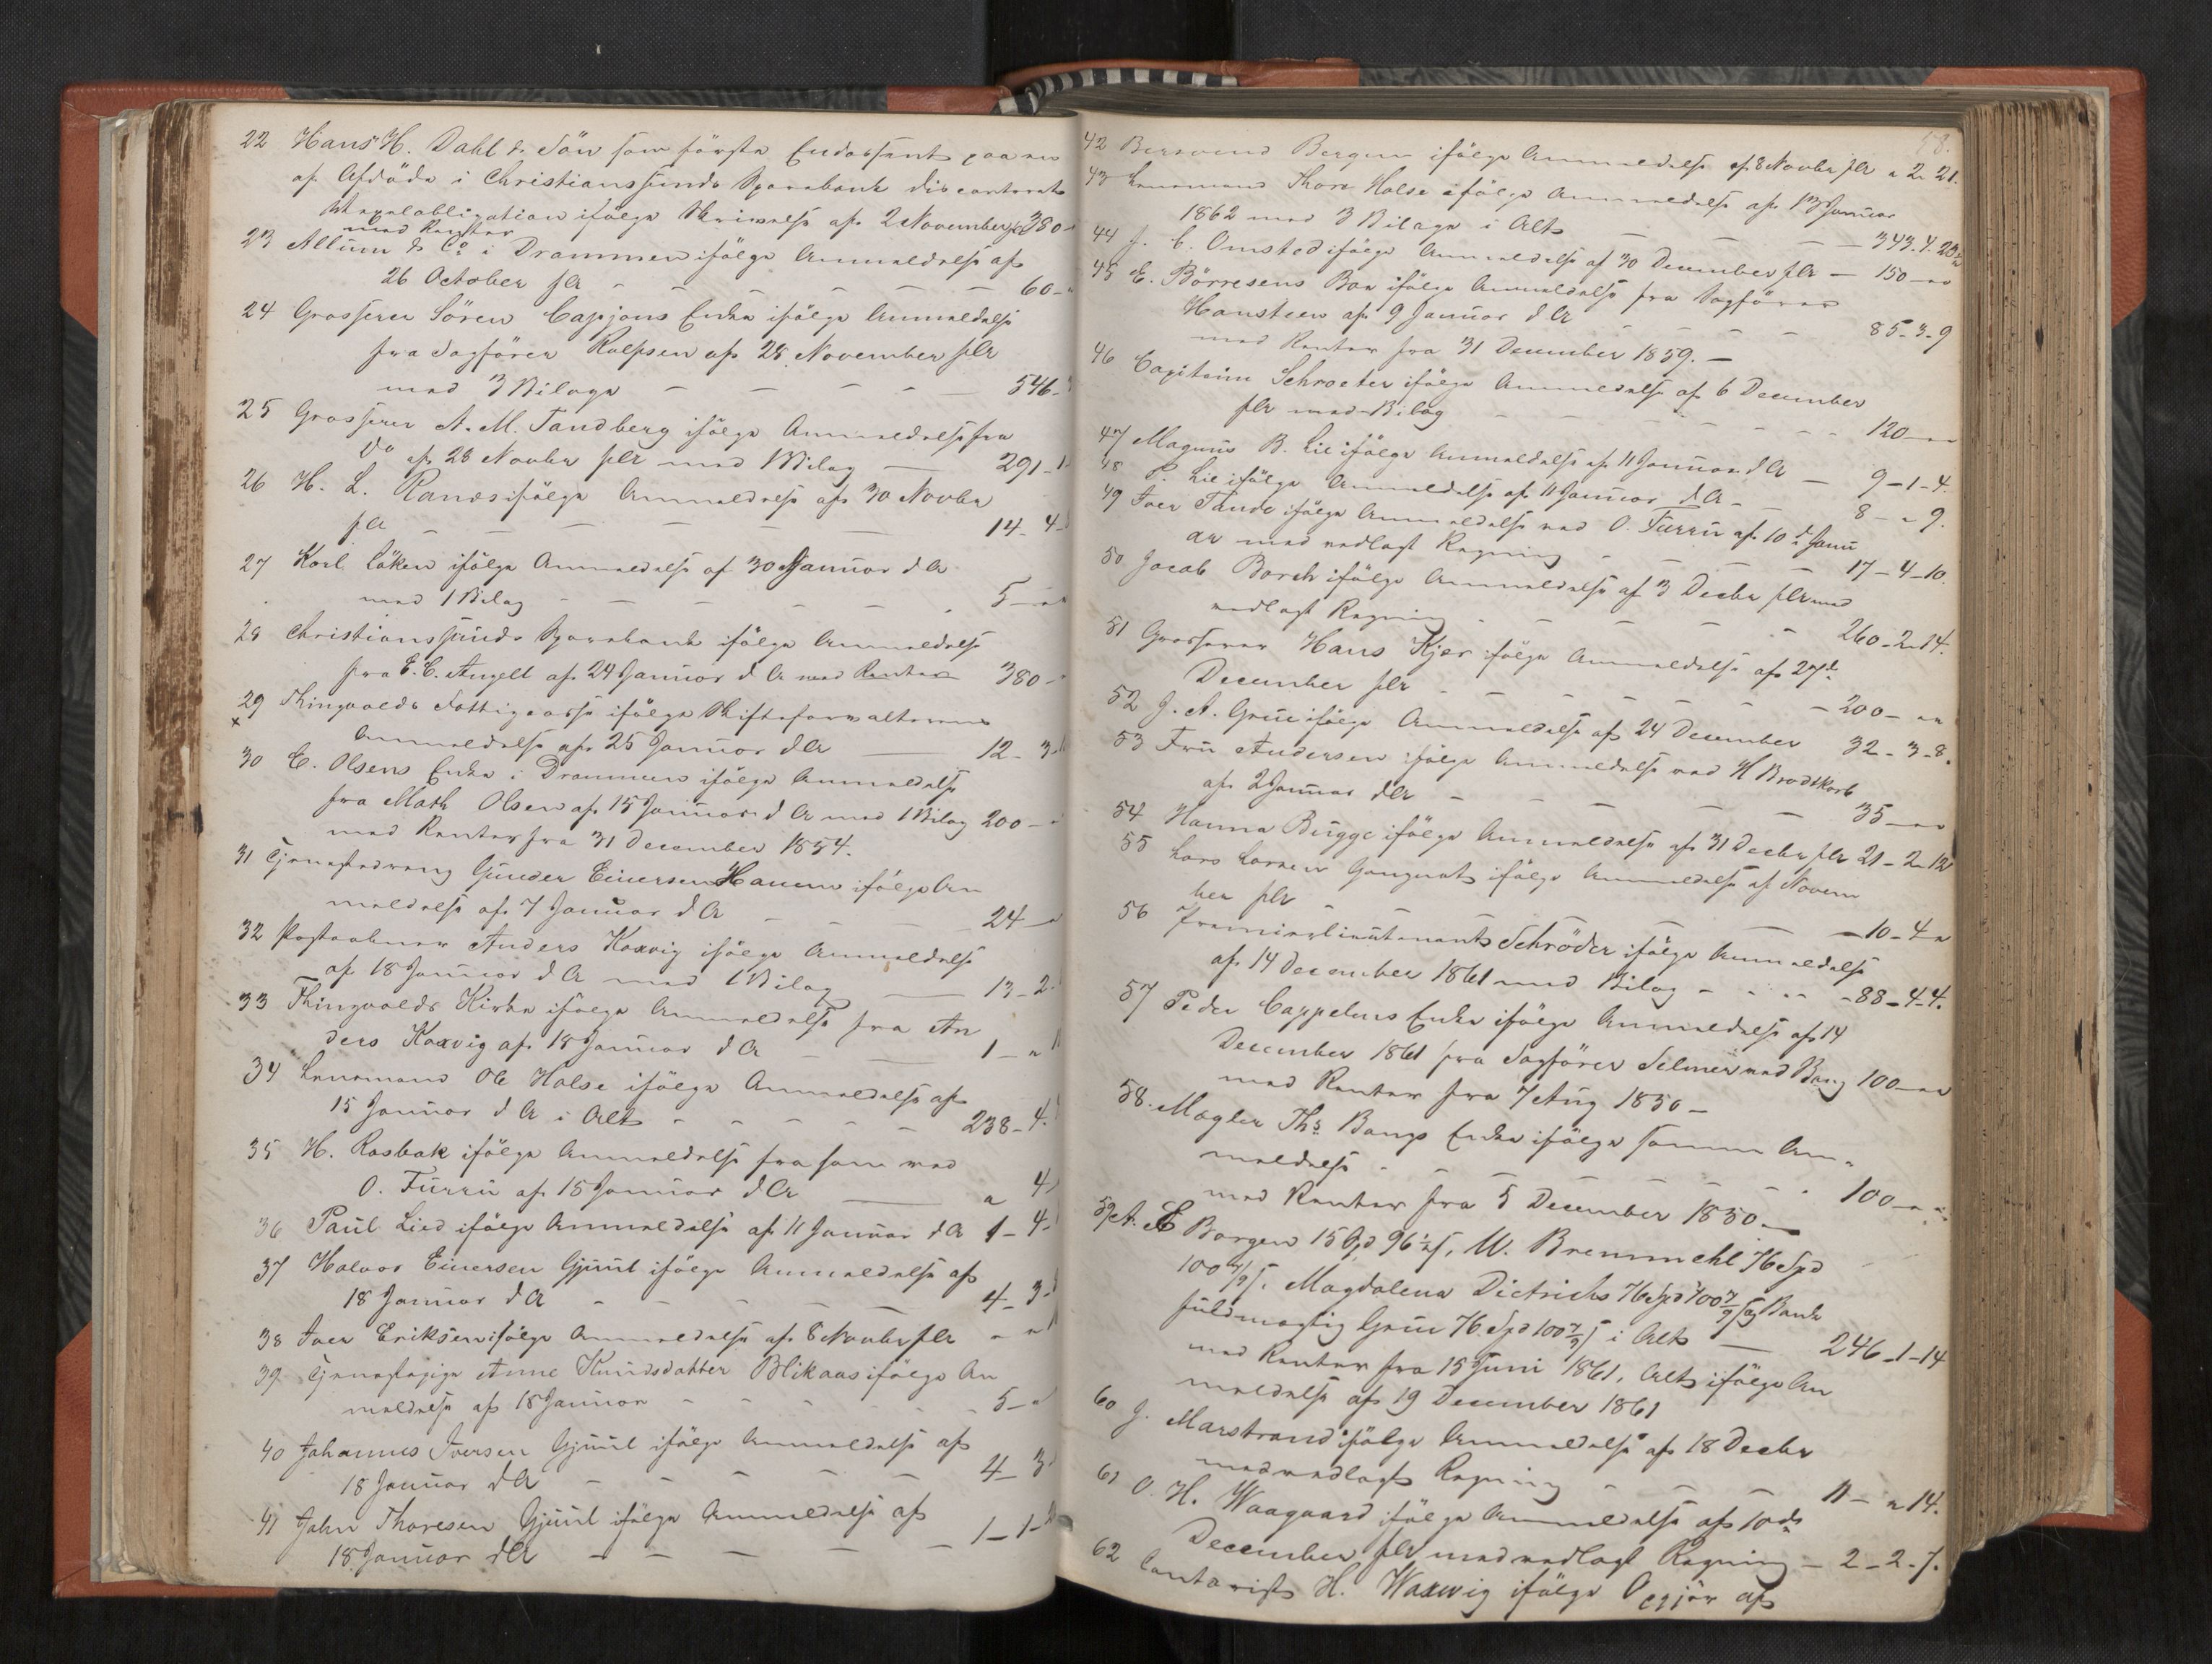 22 Hans H. Dahl & Sön som förste Endossent paa en
af Afdöde i Christianssunds Sparebank disconteret
Vexelobligation ifölge Skrivelse af 2 November f A 380 -
med Renter
23 Allum & Co i Drammen ifölge Anmeldelse af
26 October f A - - - - - - 60 -
24 Grosserer Sören Enke ifölge Anmeldelse
fra Sagförer Rolfsen af 28 November f A
med 3 Bilage - - - - 546 -
25 Grosserer A. M. Tandberg ifölge Anmeldelse fra
Do af 28 Novbr f A med 1 Bilag - 291 - 1
26 H. L. Ranes ifölge Anmeldelse af 30 Novbr
f A - - - - - 14 - 4 -
27 Karl Löken ifölge Anmeldelse af 30 Januar d A
med 1 Bilag - - - - - 5 -
28 Christianssunds Sparebank ifölge Anmeldelse
fra E. C. Angell af 24 Januar d A med Renter 380 -
29 Thingvolds Fattigcasse ifölge Skifteforvalterens
Anmeldelse af 25 Januar d A - 12 - 3 -
30 C. Olsens Enke i Drammen ifölge Anmeldelse
fra Math Olsen af 15 Januar d A med 1 Bilag 200 -
med Renter fra 31 December 1854.
31 Tjenestedreng Gunder Einersen Hanem ifölge An
meldelse af 7 Januar d A - - - 24 -
32 Postaabner Anders Koxvig ifölge Anmeldelse
af 18 Januar d A med 1 Bilag - 13 - 2 -
33 Thingvolds Kirke ifölge Anmeldelse fra An
ders Koxvig af 18 Januar d A - - 1 - "
34 Lensmand Ole Halse ifölge Anmeldelse af
15 Januar d A i Alt - - - - 238 - 4.
35 H. Rosbak ifölge Anmeldelse fra ham ved
O. Furru af 18 Januar d A - " 4
36 Paul Lied ifölge Anmeldelse af 11 Januar d A 1 - 4 -
37 Halvor Einersen Gjuul ifölge Anmeldelse af
18 Januar d A - - - - 4 - 3 -
38 Iver Eriksen ifölge Anmeldelse af 8 Novbr f A - "
39 Tjenestepige Anne Knudsdatter Blikaas ifölge An
meldelse af 18 Januar - - - - 5 -
40 Johannes Iversen Gjuul ifölge Anmeldelse af
18 Januar d A - - - - 4 - 3
41 John Thoresen Gjuul ifölge Anmeldelse af
18 Januar d A - - - - - 1 - 1 -
58.
42 Bergem ifölge Anmeldelse af 8 Novbr f A " 2. 21.
43 Lensmand Thore Halse ifölge Anmeldelse af 13 Januar
1862 med 3 Bilage i Alt - - - - 343. 4. 23
44 J. C. Omsted ifölge Anmeldelse af 30 December f A - 150 - " "
45 E. Börresens Boe ifölge Anmeldelse fra Sagförer
Hansteen af 9 Januar d A - - - - 85 - 3 - 9
med Renter fra 31 December 1859. -
46 Capitain Schroeter ifölge Anmeldelse af 6 December
f A med Bilag - - - - - 120 - " "
47 Magnus B. Lie ifölge Anmeldelse af 11 Januar d A - 9 - 1 - 4.
48 P. Lie ifölge Anmeldelse af 11 Januar d A - - 8 - " 9.
49 Iver Tande ifölge Anmeldelse ved O. Furru af 10de Janu
ar med vedlagt Regning - - - - 17 - 4 - 10.
50 Jacob Borch ifölge Anmeldelse af 3 Decbr f A med
vedlagt Regning - - - - - 260 - 2 - 14.
51 Grosserer Hans Kjer ifölge Anmeldelse af 27de
December f A - - - - - - 200 - " "
52 J. A. Grue ifölge Anmeldelse af 24 December 32 - 3 - 8.
53 Fru Andersen ifölge Anmeldelse ved H Brodtkorb
af 2 Januar d A - - - - - 35 - " "
54 Hanna Bugge ifölge Anmeldelse af 31 Decbr f A 21 - 2 - 12
55 Lars Larsen ifölge Anmeldelse af Novem
ber f A - - - - - 10 - 4 - "
56 Premierlieutenant Schröder ifölge Anmeldelse
af 14 December 1861 med Bilag - - - - 88 - 4 - 4.
57 Peder Cappelens Enke ifölge Anmeldelse af 14
December 1861 fra Sagförer Selmer ved Bang 100 - " "
med Renter fra 7 Aug 1850 -
58. Mægler Ths Bangs Enke ifölge samme An-
meldelse - - - - - - 100 - " "
med Renter fra 5 December 1850 -
59 A. E Borgen 15 Spd 96 1/2 s, W. Bremmehl 76 Spd
100 7/9 s. Magdalena Dietrichs 76 Spd 100 7/9 s og Bank
fuldmægtig Grue 76 Spd 100 7/9 s i Alt - 246 - 1 - 14
med Renter fra 15 Juni 1861, Alt ifölge An
meldelse af 19 December 1861
60 J. Marstrand ifölge Anmeldelse af 18 Decbr
med vedlagt Regning - - - - 11 - " 14.
61 O. H. Waagaard ifölge Anmeldelse af 10de
December f A med vedlagt Regning - 2 - 2 - 7.
62 Contorist H. Waxwig ifölge Opgjör af